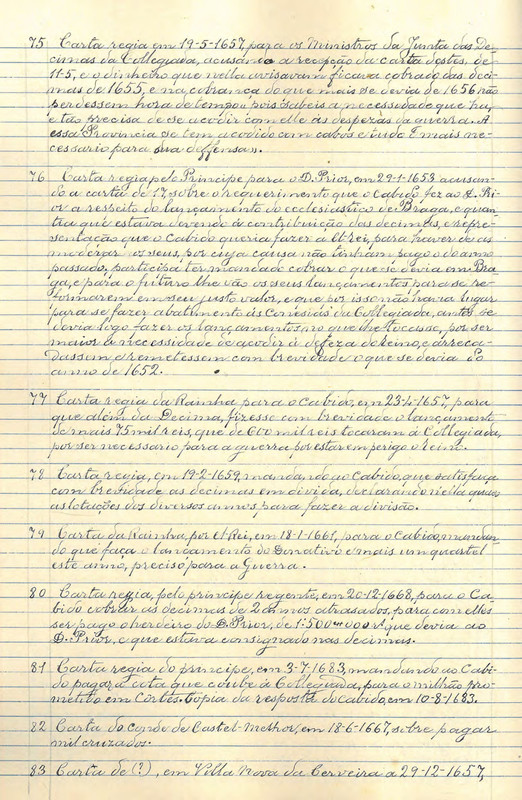 75 Carta regia em 19-5-1657, para os Ministros da Junta das De-
cimas da Collegiada, acusando a recepção da carta destes, de
11-5, e o dinheiro que nella avisavam ficava cobrado das deci-
mas de 1655, e na cobrança do que mais se devia de 1656 não
perdessem hora de tempo "pois sabeis a necessidade que ha,
e tão precisa de se acodir com elle ás despezas da guerra. A
essa Provincia se tem acodido com cabos e tudo o mais ne-
cessario para sua deffensa".
76 Carta regia pelo Principe para o D. Prior, em 29-1-1653 acusan-
do a carta de 17, sobre o requerimento que o Cabido fez ao D. Pri-
or a respeito do lançamento do ecclesiastico de Braga, e quan-
tia que estava devendo á contribuição das decimas, e repre-
sentação que o Cabido queria fazer a El-rei, para haver de os
moderar os seus, por cuja causa não tinham pago o do anno
passado, participa ter mandado cobrar o que se devia em Bra-
ga, e para o futuro lhe vão os seus lançamentos para se re-
formarem em seu justo valor, e que por isso não havia lugar
para se fazer abatimento ás Conesias da Collegiada, antes se
devia logo fazer os lançamentos no que lhe tocasse, por ser
maior a necessidade de acodir á defeza do Reino, e arreca-
dassem e remetessem com brevidade o que se devia do
anno de 1652.
77 Carta regia da Rainha para o Cabido, em 23-4-1657, para
que alem da Decima, fizesse com brevidade o lançamento
de mais 75 mil reis, que de 600 mil reis tocaram á Collegiada,
por ser necessario para a guerra por estar em perigo o reino.
78 Carta regia, em 19-2-1659, mandando ao Cabido que satisfaça
com brevidade as decimas em divida, declarando nella quaes
as lotações dos diversos annos para fazer a divisão.
79 Carta da Rainha, por El-Rei, em 18-1-1661, para o Cabido, mandan-
do que faça o lançamento do Donativo e mais um quartel
este anno, preciso para a Guerra.
80 Carta regia, pelo principe regente, em 20-12-1668, para o Ca-
bido cobrar as decimas de 2 annos atrasados, para com elles
ser pago o herdeiro do D. Prior, de 1:500 000 que devia ao
D. Prior, e que estava consignado nas decimas.
81 Carta regia do principe, em 3-7-1683, mandando ao Cabi-
do pagar a cota que coube á Collegiada, para o milhão pro-
metido em Côrtes. Copia da resposta do Cabido, em 10-8-1683.
82 Carta do conde de Castel-Melhor, em 18-6-1667, sobre pagar
mil cruzados.
83 Carta de (?), em Villa Nova da Cerveira a 29-12-1657,